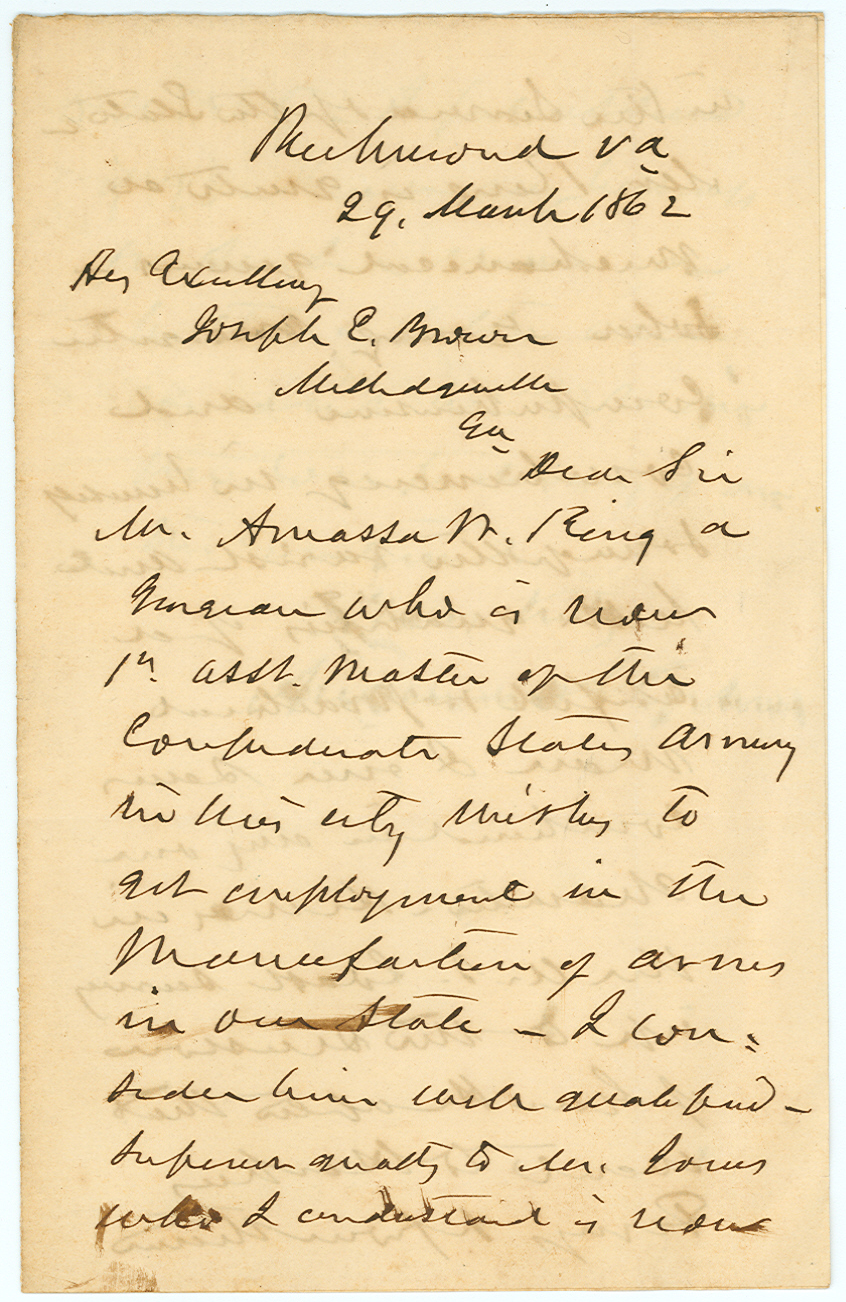 Richmond Va
29, March 1862
His Excellency
Joseph E. Brown
Milledgeville
Ga
Dear Sir
Mr. Amassa W. King a
Georgian who is now
1st. asst. Master of the
Confederate States Armory
in this city wishes to
get employment in the
Manufacture of arms
in our State – I con=
sider him well qualified –
superior greatly to Mr. Jones
who I understand is now